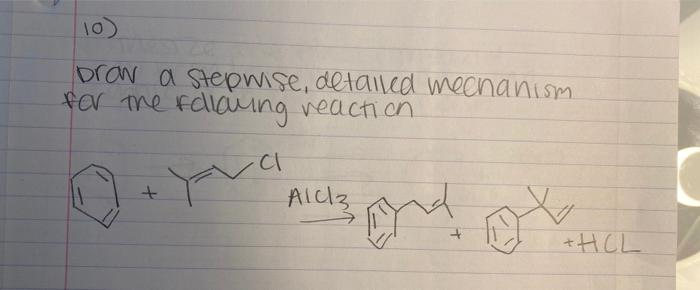 10)
Draw a stepwise, detailed mechanism
for the following reaction
+ Cl
AlCl3
+ + HCL